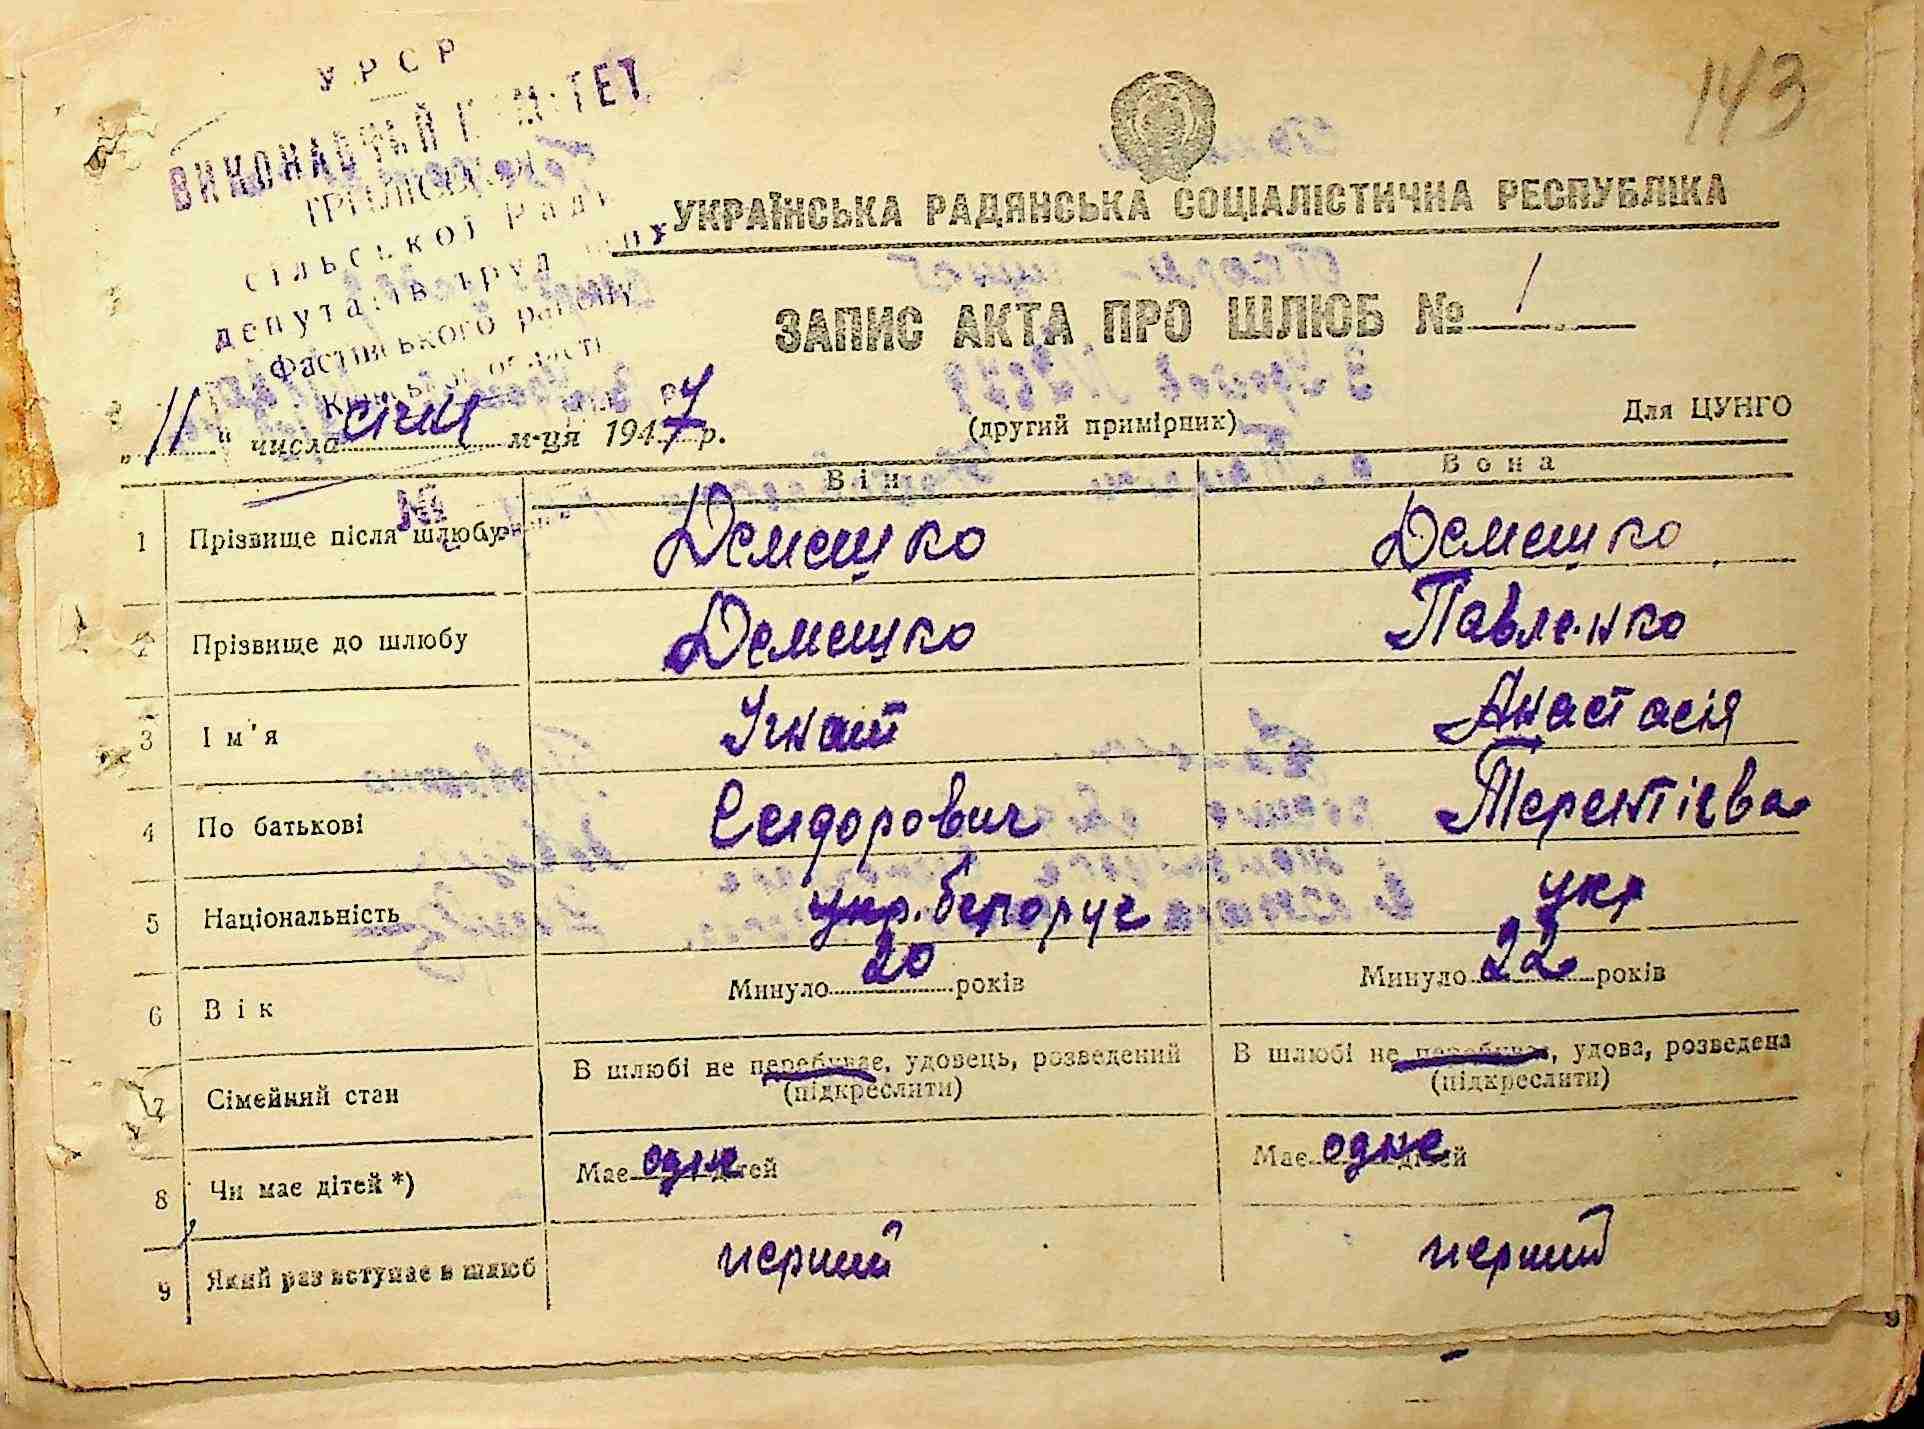 143
УРСР
ВИКОНАВЧИЙ КОМІТЕТ
сільської Ради
депутатів труд
Фастівського району
Київської області
УКРАЇНСЬКА РАДЯНСЬКА СОЦІАЛІСТИЧНА РЕСПУБЛІКА
ЗАПИС АКТА ПРО ШЛЮБ № 1
„11" числа січня м-ця 1947 р.
(другий примірник)
Для ЦУНГО
№
Він Вона
1 Прізвище після шлюбу Демешко Демешко
2 Прізвище до шлюбу Демешко Павленко
3 Ім'я Ігнат Анастасія
4 По батькові Сидорович Терентієва
5 Національність укр. білорус укр
6 Вік Минуло 20 років Минуло 22 років
7 Сімейний стан В шлюбі не перебуває, удовець, розведений В шлюбі не перебуває, удова, розведена
(підкреслити) (підкреслити)
8 Чи має дітей *) Має одне дітей Має одне дітей
9 Який раз вступає в шлюб перший перший